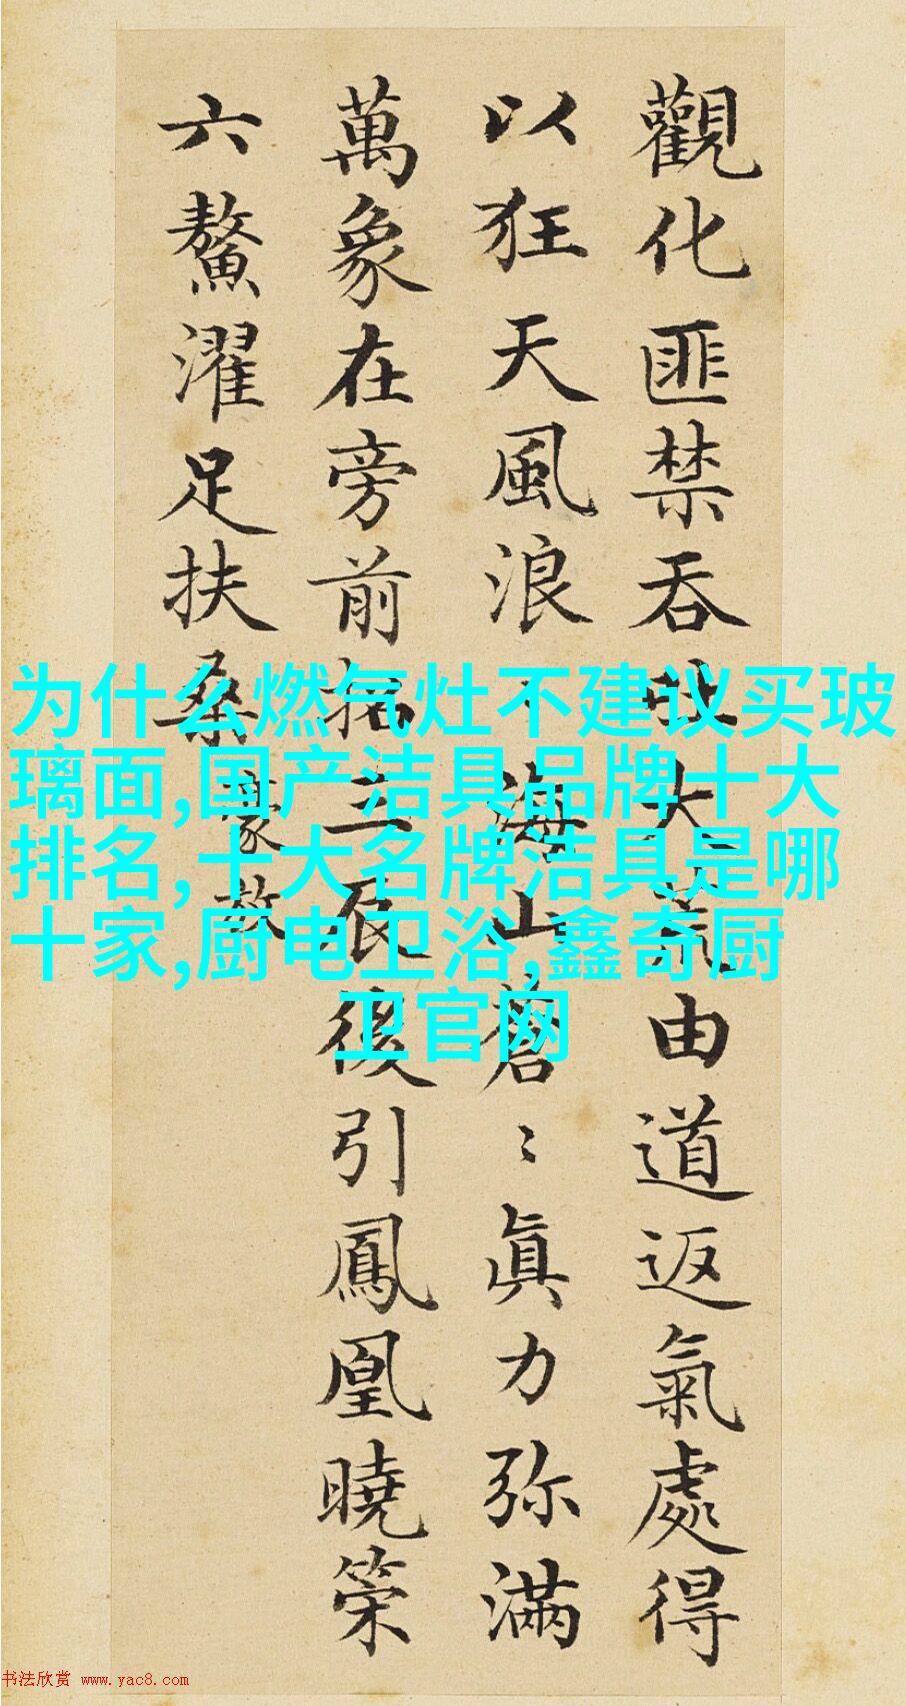 觀化匪禁吞吐大荒由道返氣處得
以狂天風浪〻海山蒼〻眞力弥滿
萬象在旁前招三辰後引鳳凰曉策
六鰲濯足扶桑
豪放
为什么燃气灶不建议买玻
璃面,国产洁具品牌十大
排名,十大名牌洁具是哪
十家,厨电卫浴,鑫奇厨
卫官网
书法欣赏 www.yac8.com